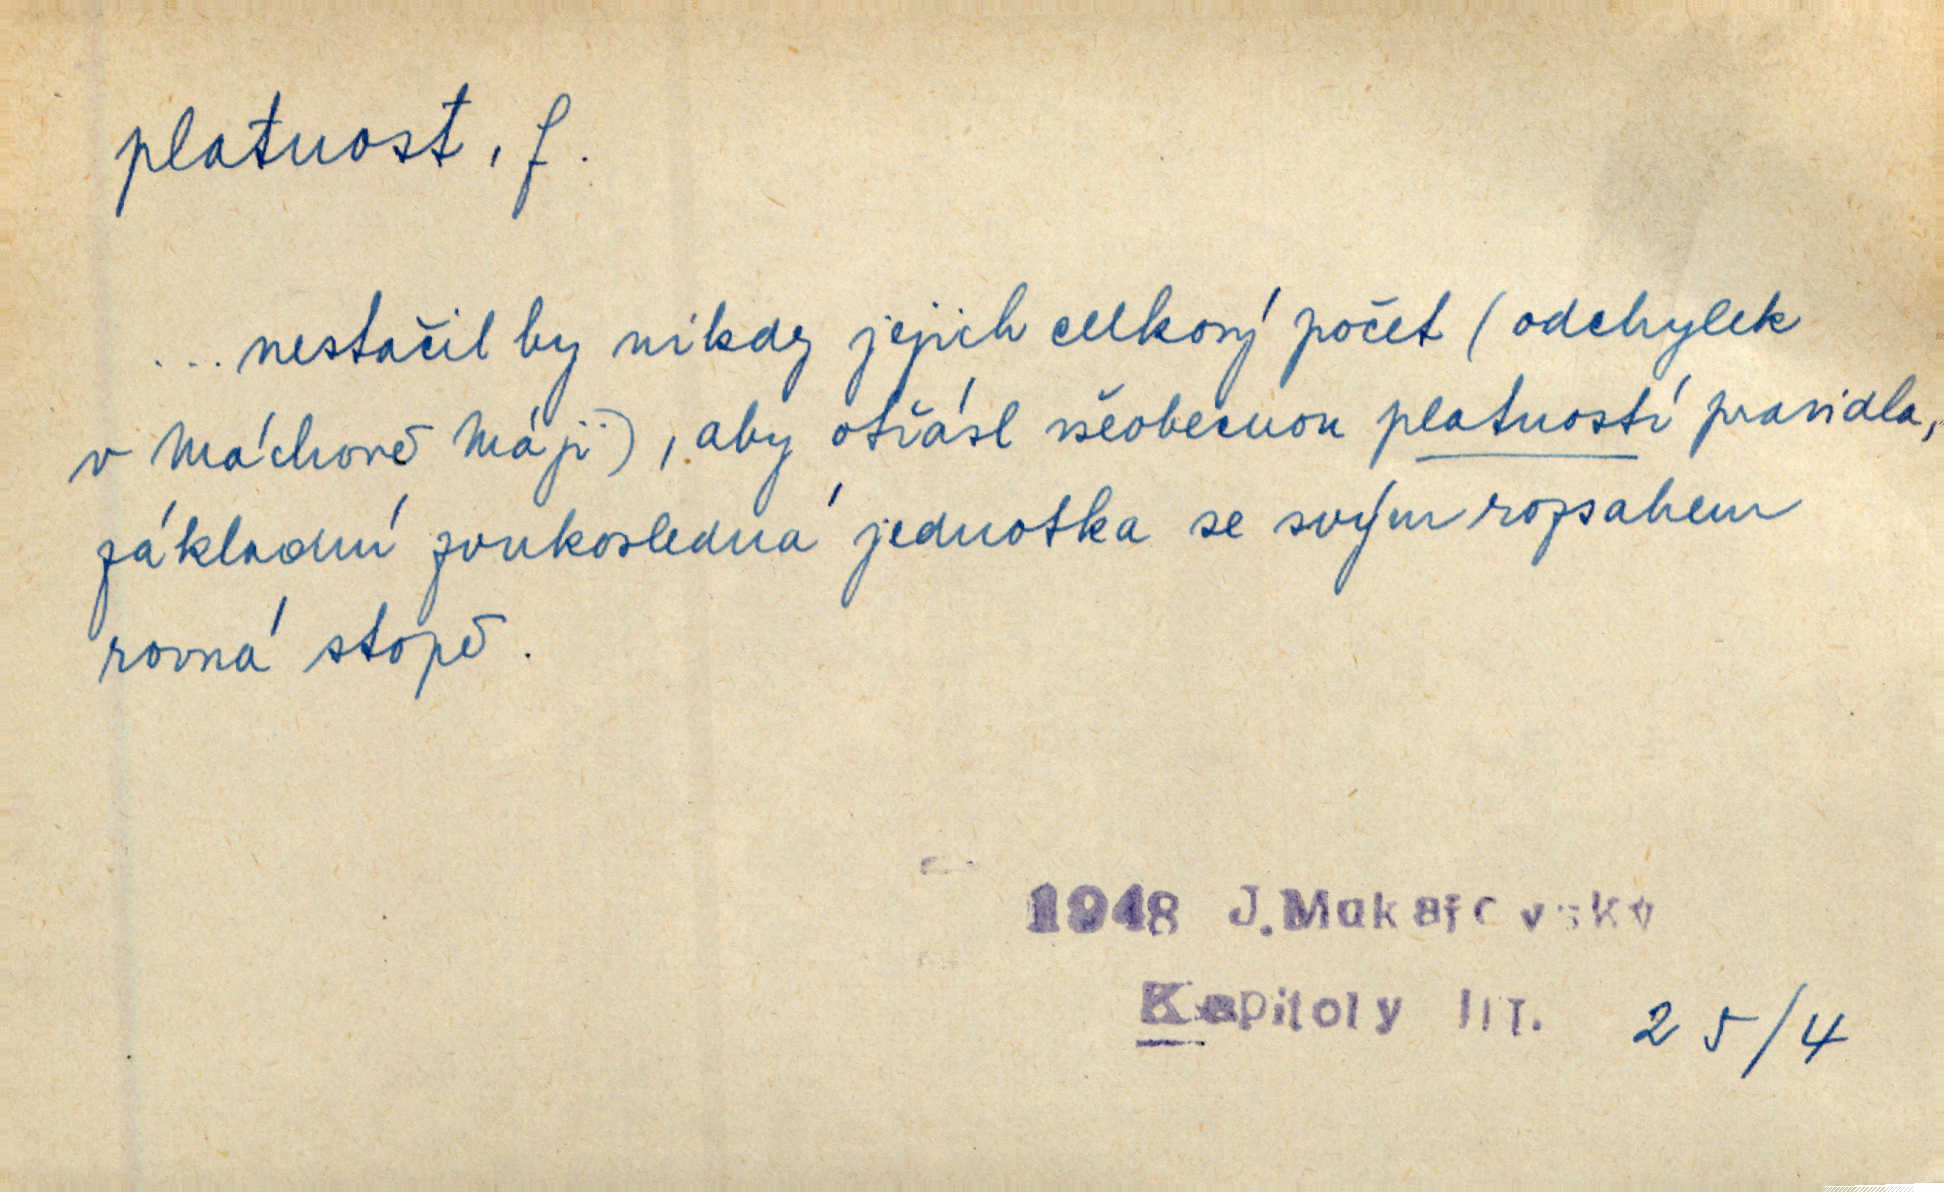 platnost, f.
... nestačil by nikdy jejich celkový počet (odchylek
v Máchově Máji), aby otřásl všeobecnou platností pravidla,
základní zvukosledná jednotka se svým rozsahem
rovná stopě.
1948 J.Mukařovský
Kapitoly III. 25/4